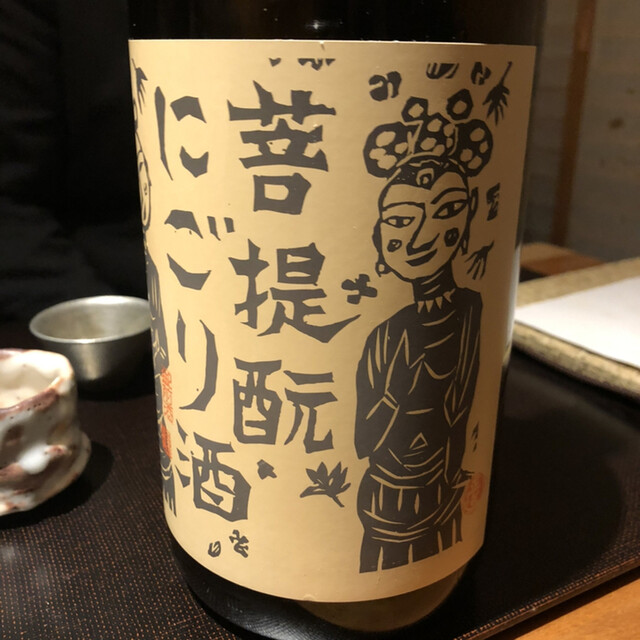 菩提酛
にごり酒